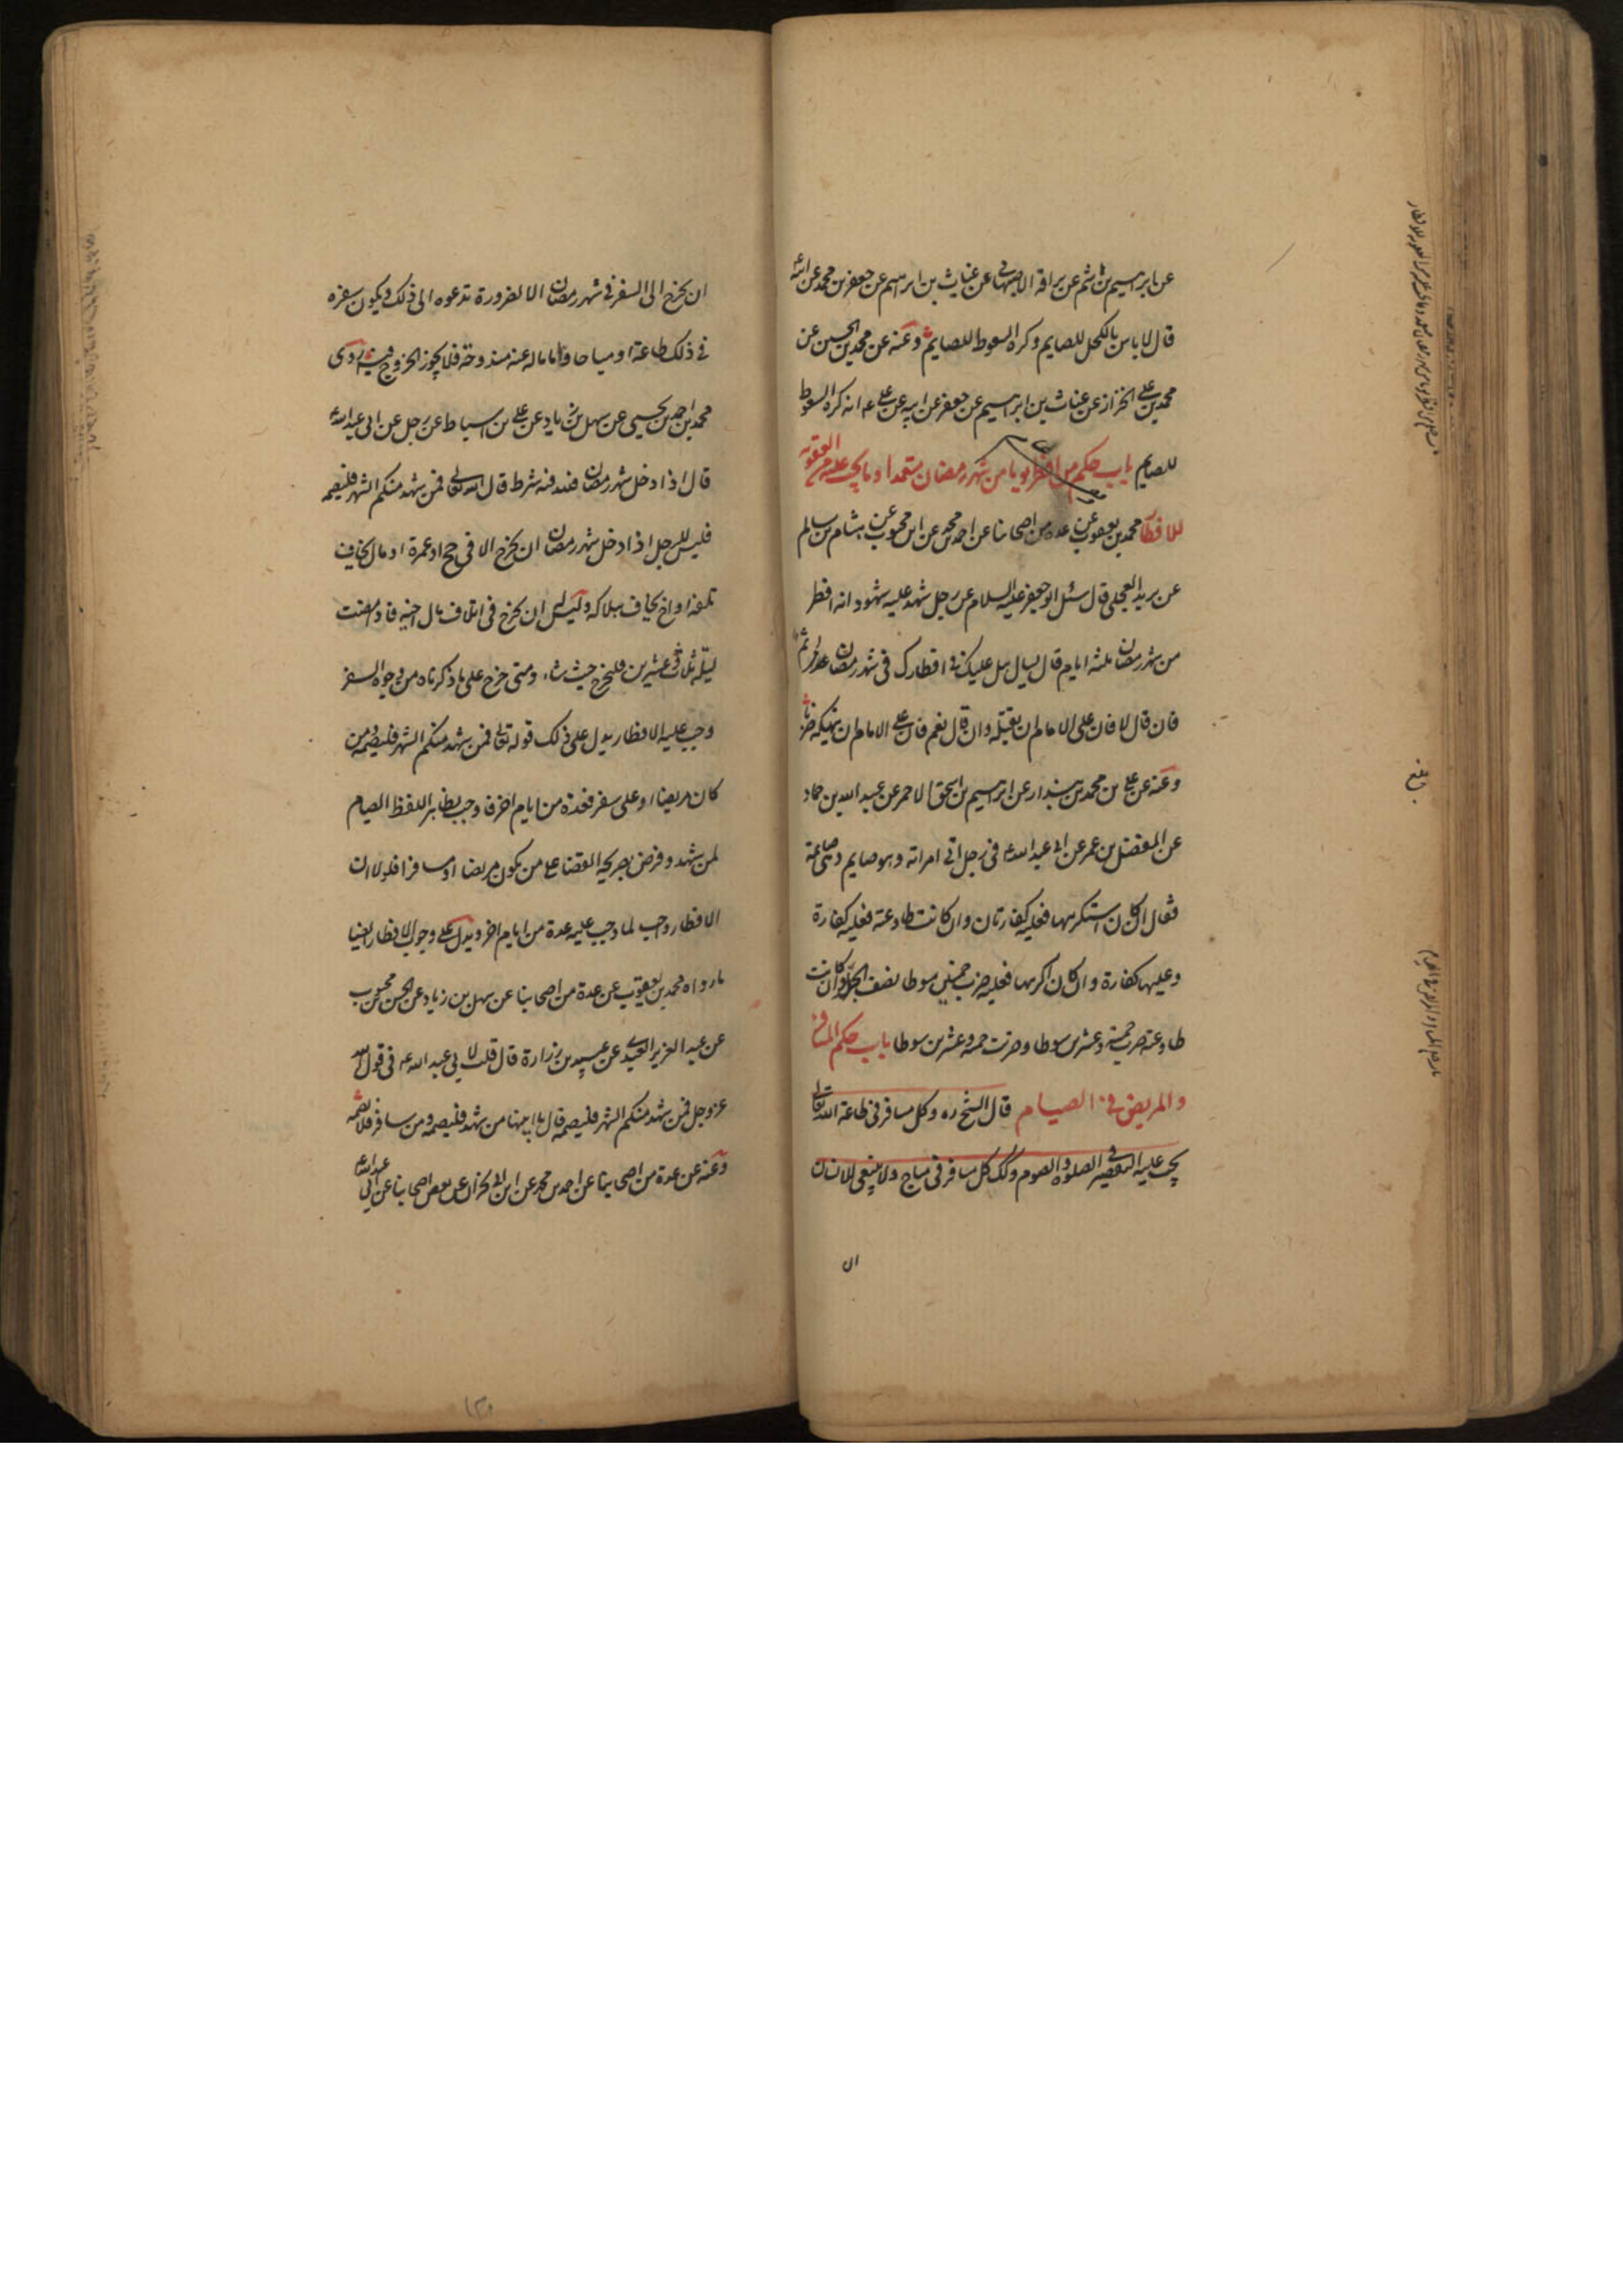 عن ابراهيم بن هاشم عن براقة الاصبهانى عن غياث بن ابراهيم عن جعفر بن محمد عن ابيه
قال لا باس بالكحل للصايم وكره السعوط للصايم وعنه عن محمد بن الحسين عن
محمد بن على الخزاز عن غياث بن ابراهيم عن جعفر عن ابيه عن على ع انه كره السعوط
للصايم باب حكم من افطر يوما من شهر رمضان متعمدا وما يجب عليه من العقوبة
للافطار محمد بن يعقوب عن عدة من اصحابنا عن احمد بن محمد عن ابن محبوب عن هشام بن سالم
عن بريد العجلى قال سئل ابو جعفر عليه السلام عن رجل شهد عليه شهود انه افطر
من شهر رمضان ثلثة ايام قال يسال هل عليك فى افطارك فى شهر رمضان اثم
فان قال لا فان على الامام ان يقتله وان قال نعم فان على الامام ان ينهكه ضربا
وعنه عن على بن محمد بن بندار عن ابراهيم بن اسحق الاحمر عن عبد الله بن حماد
عن المفضل بن عمر عن ابى عبد الله ع فى رجل اتى امراته وهو صايم وهى صايمة
فقال ان كان استكرهها فعليه كفارتان وان كانت طاوعته فعليه كفارة
وعليها كفارة وان كان اكرهها فعليه ضرب خمسين سوطا نصف الحد وان كانت
طاوعته ضرب خمسة وعشرين سوطا وضربت خمسة وعشرين سوطا باب حكم المسافر
والمريض فى الصيام قال الشيخ ره وكل مسافر فى طاعة الله تعالى
يجب عليه التقصير فى الصلوة والصوم وكذلك كل مسافر فى مباح ولا ينبغى للانسان
ان
ان يخرج الى السفر فى شهر رمضان الا لضرورة تدعوه الى ذلك ويكون سفره
فى ذلك طاعة او مباحا واما ماله عنه مندوحة فلا يجوز الخروج فيه روى
محمد بن احمد بن يحيى عن سهل بن زياد عن على بن اسباط عن رجل عن ابى عبد الله ع
قال اذا دخل شهر رمضان فلله فيه شرط قال الله تعالى فمن شهد منكم الشهر فليصمه
فليس للرجل اذا دخل شهر رمضان ان يخرج الا فى حج او عمرة او مال يخاف
تلفه او اخ يخاف هلاكه وليس له ان يخرج فى اتلاف مال اخيه فاذا مضت
ليلة ثلاث وعشرين فليخرج حيث شاء ومتى خرج على ما ذكرناه من وجوه السفر
وجب عليه الافطار يدل على ذلك قوله تعالى فمن شهد منكم الشهر فليصمه ومن
كان مريضا او على سفر فعدة من ايام اخر فاوجب بظاهر اللفظ الصيام
لمن شهد وفرض بصريحه القضاء على من يكون مريضا او مسافرا فلولا ان
الافطار واجب لما وجب عليه عدة من ايام اخر ويدل على وجوب الافطار ايضا
ما رواه محمد بن يعقوب عن عدة من اصحابنا عن سهل بن زياد عن الحسن بن محبوب
عن عبد العزيز العبدى عن عبيد بن زرارة قال قلت لابى عبد الله ع فى قول الله
عز وجل فمن شهد منكم الشهر فليصمه قال ما ابينها من شهد فليصمه ومن سافر فلا يصمه
وعنه عن عدة من اصحابنا عن احمد بن محمد عن ابن ابى نجران عن بعض اصحابنا عن ابى عبد الله ع